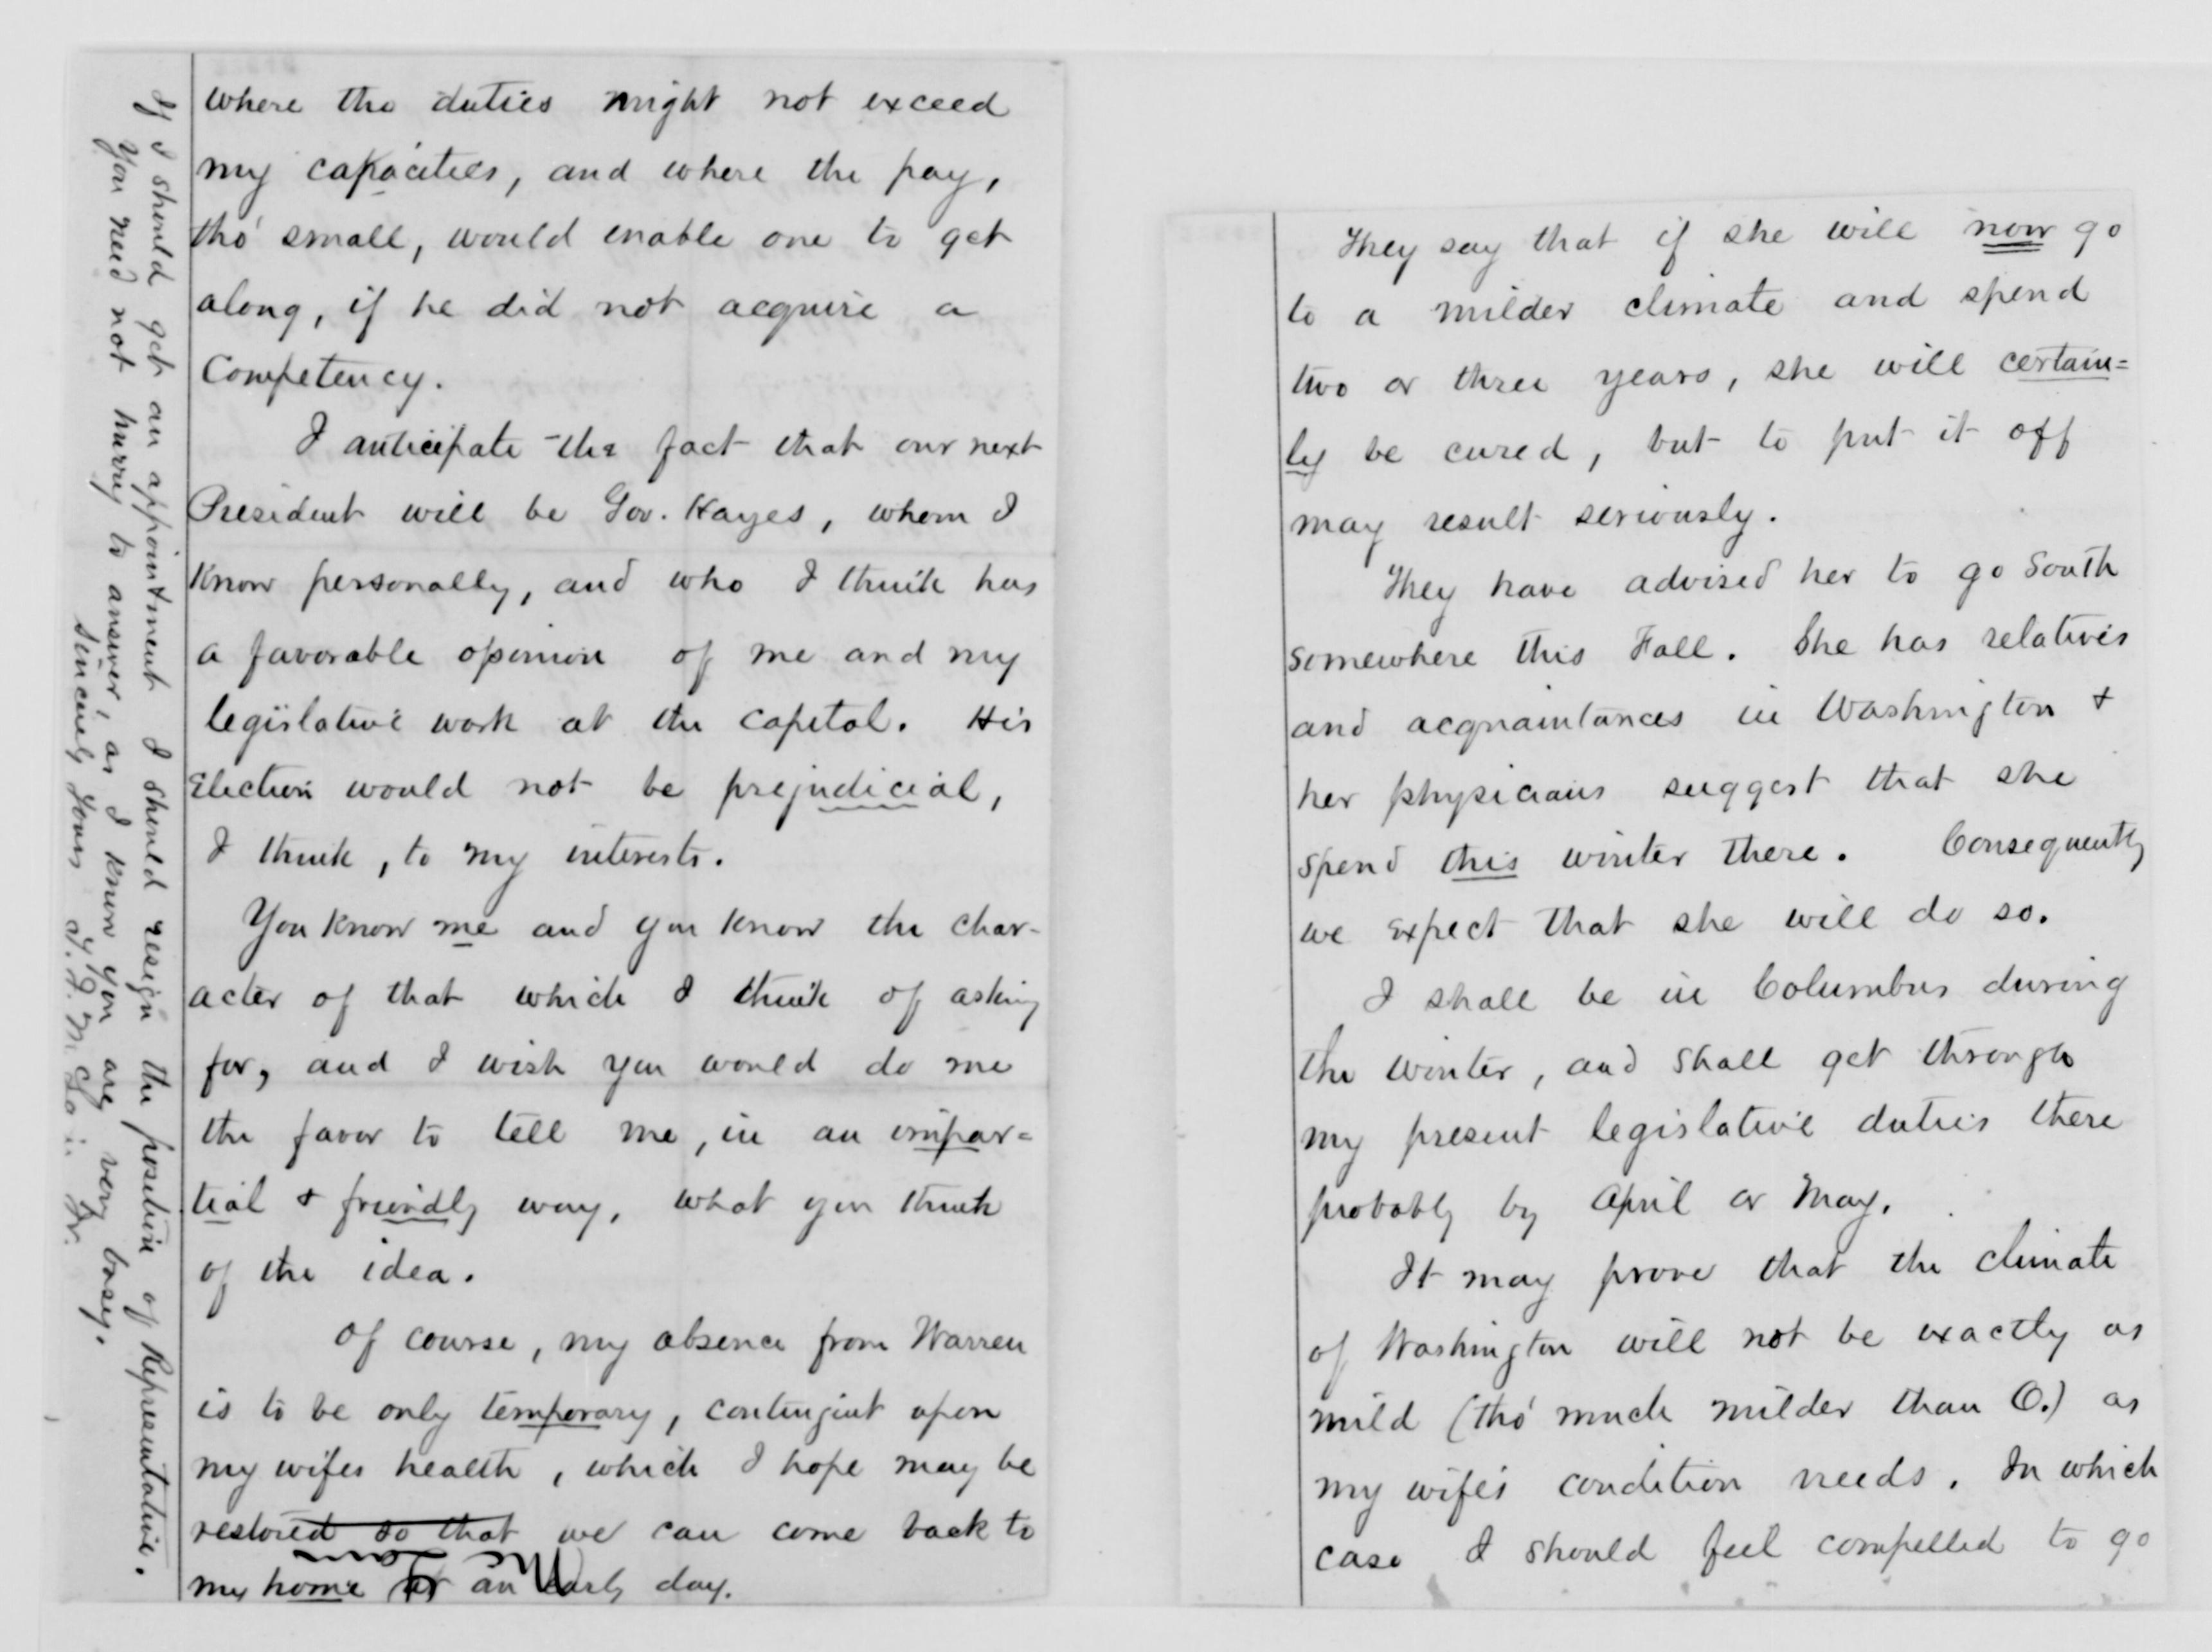 where the duties might not exceed
my capacities, and where the pay,
tho' small, would enable one to get
along, if he did not acquire a
Competency.
I anticipate the fact that our next
President will be Gov. Hayes, whom I
Know personally, and who I think has
a favorable opinion of me and my
legislative work at the capital. His
Election would not be prejudicial,
I think, to my interests.
You Know me and you know the char-
acter of that which I think of asking
for, and I wish you would do me
the favor to tell me, in an impar=
tial & friendly way, what you think
of the idea.
Of course, my absence from Warren
is to be only temporary, contingent upon
my wifes health, which I hope may be
restored so that we can come back to
my home at an early day.
If I should get an appointment I should resign the position of Representative.
You need not hurry to answer, as I know you are very busy.
Sincerely Yours
They say that if she will now go
to a milder climate and spend
two or three years, she will certain=
ly be cured, but to put it off
may result seriously.
They have advised her to go South
somewhere this Fall. She has relatives
and acquaintances in Washington &
her physicians suggest that she
spend this winter there. Consequently
we Expect that she will do so.
I shall be in Columbus during
the winter, and shall get through
my present legislative duties there
probably by April or May.
It may prove that the climate
of Washington will not be exactly as
mild (tho' much milder than O.) as
my wife's condition needs. In which
case I should feel compelled to go